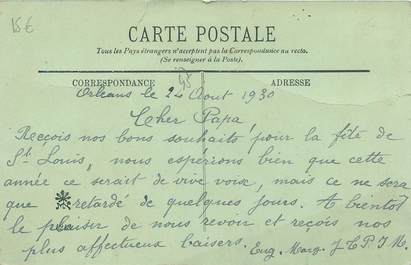 15€
CARTE POSTALE
Tous les Pays étrangers n'acceptent pas la Correspondance au recto.
(Se renseigner à la Poste).
CORRESPONDANCE
ADRESSE
Orléans le 24 Aout 1930
Cher Papa
Reçois nos bons souhaits pour la fête de
St Louis, nous esperions bien que cette
année ce serait de vive voix, mais ce ne sera
que retardé de quelques jours. A bientot
le plaisir de nous revoir et reçois nos
plus affectueux baisers.
Eug. Marg. J. C. P. J. M.